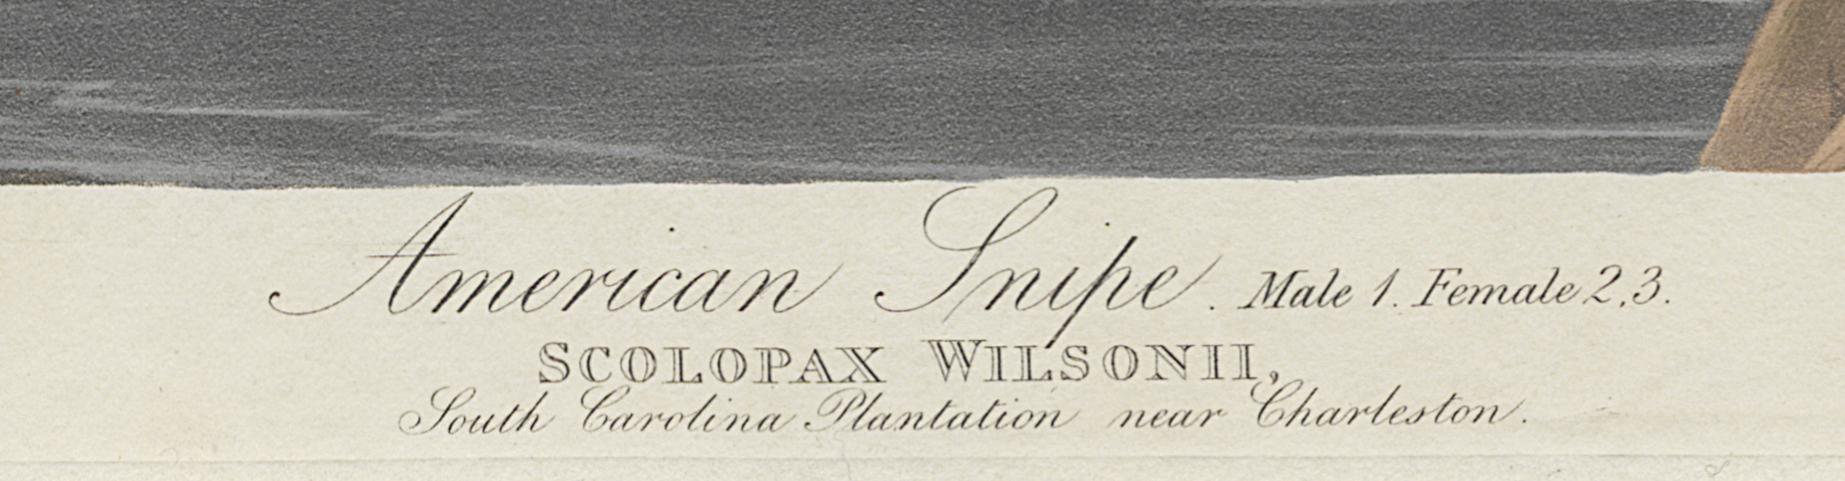 American Snipe. Male 1. Female 2,3.
SCOLOPAX WILSONII,
South Carolina Plantation near Charleston.